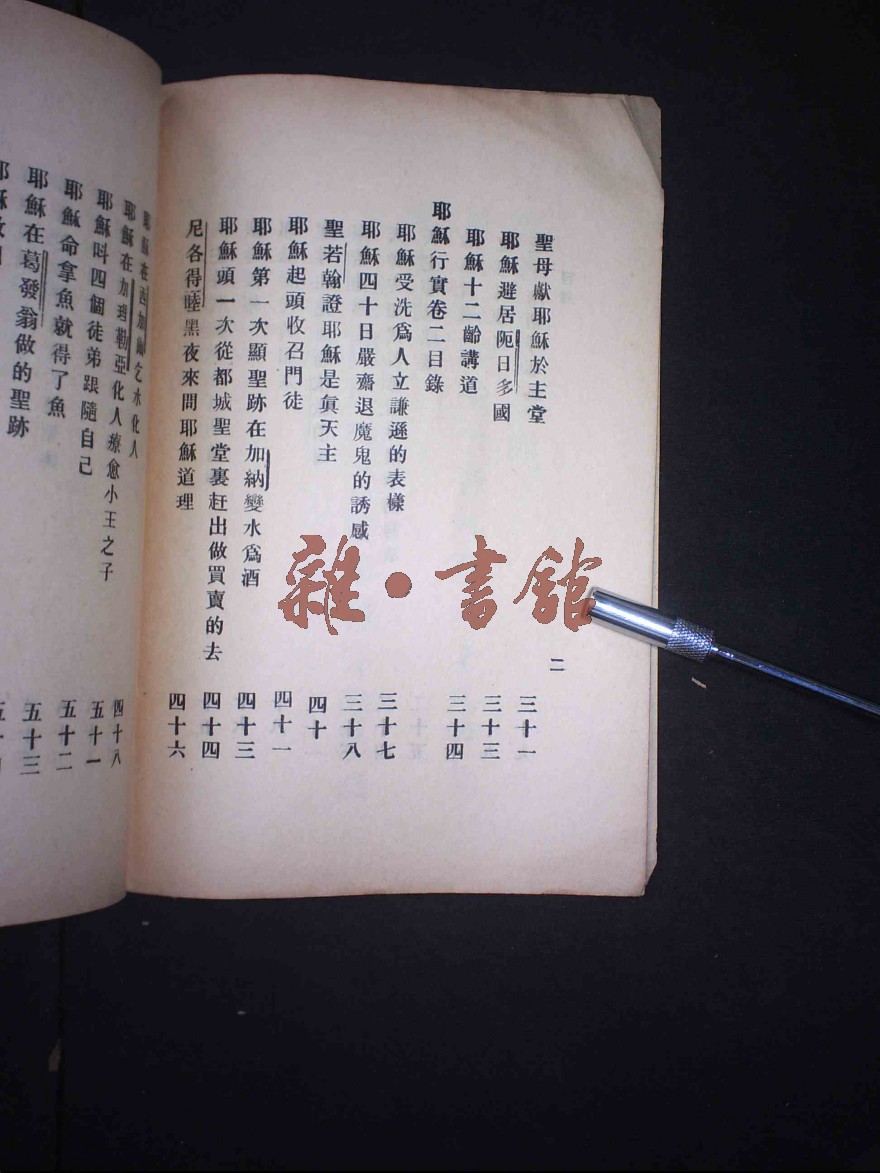 聖母獻耶穌於主堂 三十一
耶穌避居阨日多國 三十三
耶穌十二齡講道 三十四
耶穌行實卷二目錄
耶穌受洗爲人立謙遜的表樣 三十七
耶穌四十日嚴齋退魔鬼的誘感 三十八
聖若翰證耶穌是眞天主 四十
耶穌起頭收召門徒 四十一
耶穌第一次顯聖跡在加納變水爲酒 四十三
耶穌頭一次從都城聖堂裏赶出做買賣的去 四十四
尼各得睦黑夜來問耶穌道理 四十六
二
耶穌在西加爾乞水化人 四十八
耶穌在加理勒亞化人療愈小王之子 五十一
耶穌呌四個徒弟跟隨自己 五十二
耶穌命拿魚就得了魚
耶穌在葛發翁做的聖跡 五十三
雜·書館